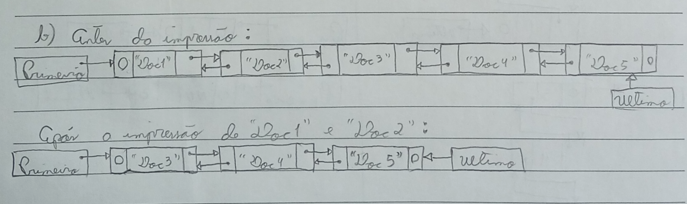 b) Antes da impressão:
Primeiro 0 "Doc1" "Doc2" "Doc3" "Doc4" "Doc5" 0
Ultimo
Após a impressão de "Doc1" e "Doc2":
Primeiro 0 "Doc3" "Doc4" "Doc5" 0 Ultimo